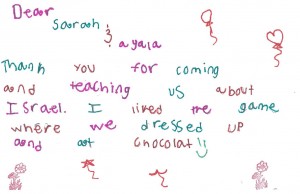 Dear
Soorooh &
ayala
Thank you for coming
oond teaching us about
Israel. I liked the game
where we dressed up
oond oot chocolat!!